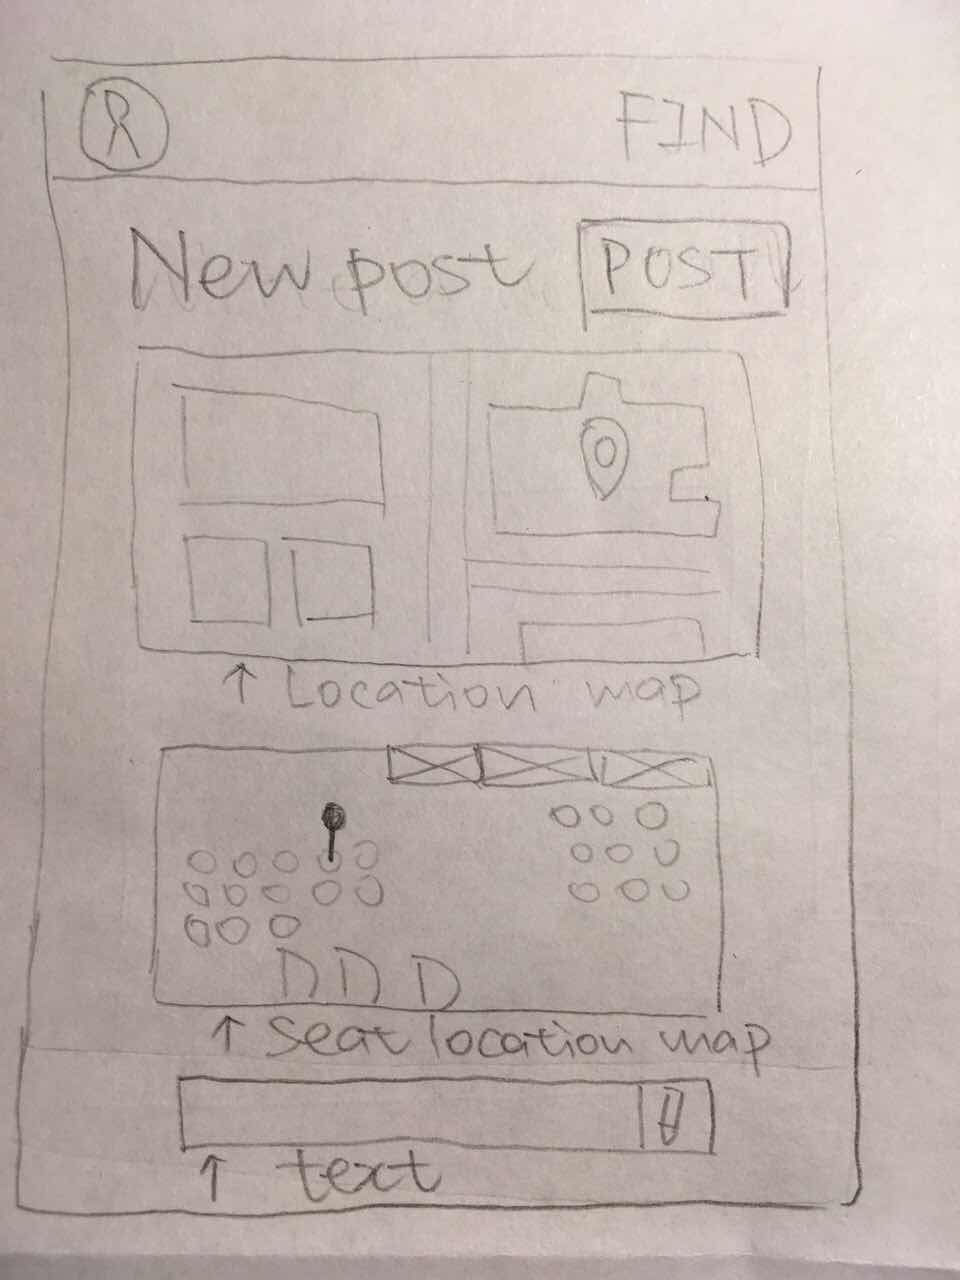 FIND
New post POST
↑ Location map
↑ seat location map
↑ text